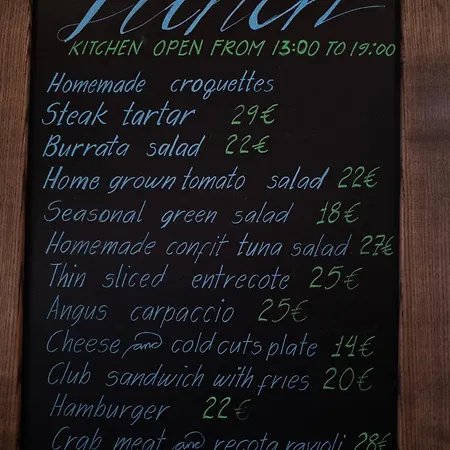 Lunch
KITCHEN OPEN FROM 13:00 TO 19:00
Homemade croquettes
Steak tartar 29€
Burrata salad 22€
Home grown tomato salad 22€
Seasonal green salad 18€
Homemade confit tuna salad 27€
Thin sliced entrecote 25€
Angus carpaccio 25€
Cheese and cold cuts plate 14€
Club sandwich with fries 20€
Hamburger 22€
Crab meat and recota ravioli 28€